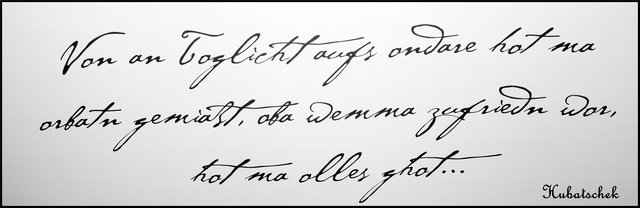 Von an Toglicht aufs ondare hot ma
orbatn gemiaßt, oba wemma zufriedn wor,
hot ma olles ghot...
Hubatschek